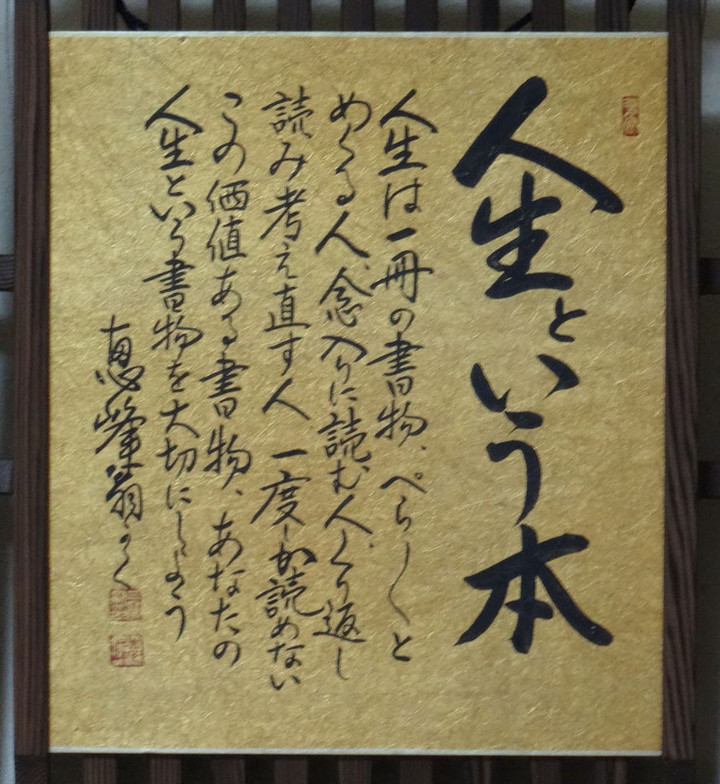 人生という本
人生は一冊の書物、ぺらぺらと
めくる人、念入りに読む人、くり返し
読み考え直す人 一度しか読めない
この価値ある書物、あなたの
人生という書物を大切にしよう
恵峰翁かく